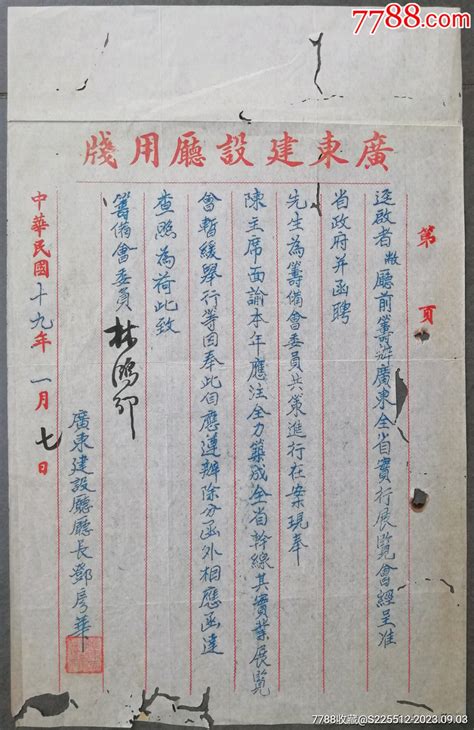 7788.com
廣東建設廳用牋
第　頁
逕啟者敝廳前籌辦廣東全省實行展覽會經呈准
省政府并函聘
先生為籌備會委員共策進行在案現奉
陳主席面諭本年應注全力築成全省幹線其實業展覽
會暫緩舉行等因奉此自應遵辦除分函外相應函達
查照為荷此致
籌備會委員林鴻卯
廣東建設廳廳長鄧彥華
中華民國十九年一月七日
7788收藏@S225512·2023.09.03